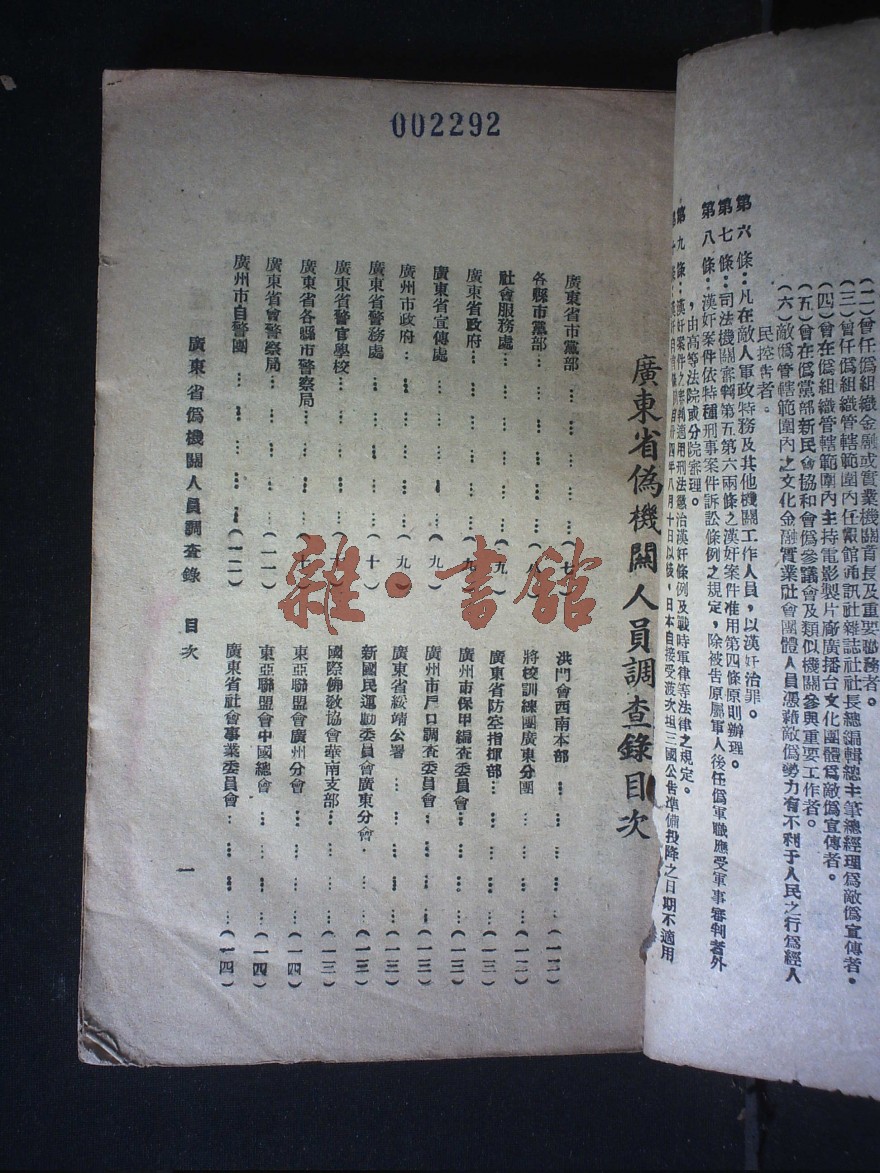 （二）曾任偽組織金融或實業機關首長及重要職務者。
（三）曾任偽組織管轄範圍內任報館通訊社雜誌社社長總編輯總主筆總經理爲敵偽宣傳者。
（四）曾在偽組織管轄範圍內主持電影製片廠廣播台文化團體爲敵偽宣傳者。
（五）曾在偽黨部新民會協和會偽參議會及類似機關參與重要工作者。
（六）敵偽管轄範圍內之文化金融實業社會團體人員憑藉敵偽勢力有不利于人民之行爲經人
民控告者。
第六條：凡在敵人軍政特務及其他機關工作人員，以漢奸治罪。
第七條：司法機關審判第五第六兩條之漢奸案件准用第四條原則辦理。
第八條：漢奸案件依特種刑事案件訴訟條例之規定，除被告原屬軍人後任偽軍職應受軍事審判者外
，由高等法院或分院審理。
第九條：漢奸案件之審判適用刑法懲治漢奸條例及戰時軍律等法律之規定。
四年八月十日以後，日本自接受波次坦三國公告準備投降之日期不適用
002292
廣東省偽機關人員調查錄目次
廣東省市黨部…………（七）
各縣市黨部…………（八）
社會服務處…………（九）
廣東省政府…………（九）
廣東省宣傳處…………（九）
廣州市政府…………（九）
廣東省警務處…………（十）
廣東省警官學校…………（十）
廣東省各縣市警察局…………（十）
廣東省會警察局…………（一一）
廣州市自警團…………（一二）
洪門會西南本部…………（一二）
將校訓練團廣東分團…………（一二）
廣東省防空指揮部…………（一三）
廣州市保甲編查委員會…………（一三）
廣州市戶口調查委員會…………（一三）
廣東省綏靖公署…………（一三）
新國民運動委員會廣東分會…………（一三）
國際佛教協會華南支部…………（一三）
東亞聯盟會廣州分會…………（一四）
東亞聯盟會中國總會…………（一四）
廣東省社會事業委員會…………（一四）
廣東省偽機關人員調查錄 目次
一
雜·書館